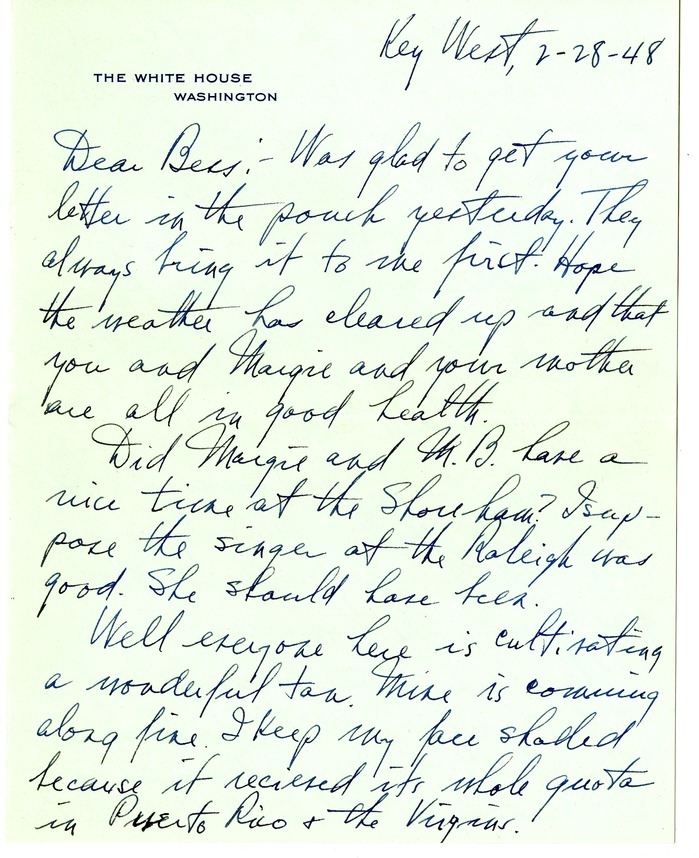 Key West, 2-28-48
THE WHITE HOUSE
WASHINGTON
Dear Bess:- Was glad to get your
letter in the pouch yesterday. They
always bring it to me first. Hope
the weather has cleared up and that
you and Margie and your mother
are all in good health.
Did Margie and M.B. have a
nice time at the Shoreham? I sup-
pose the singer at the Raleigh was
good. She should have been.
Well everyone here is cultivating
a wonderful tan. Mine is comming
along fine. I keep my face shaded
because it recieved its whole quota
in Puerto Rico & the Virgins.